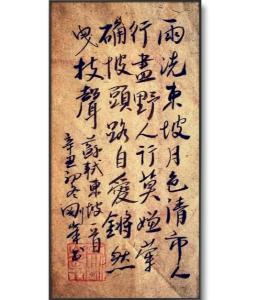 雨洗東坡月色清市人
行盡野人行莫嫌犖
確坡頭路自愛鏘然
曳杖聲
蘇軾東坡一首
辛丑初冬剛峯書